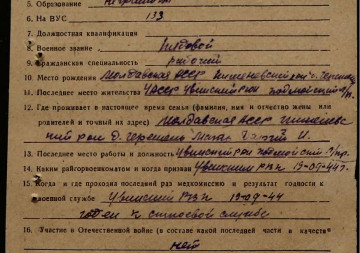 5. Образование
6. На ВУС 133
7. Должностная квалификация
8. Военное звание рядовой
9. Гражданская специальность рабочий
10. Место рождения Молдавская ССР Кишиневский р-н с.
11. Последнее место жительства УАССР Увинский р-н
12. Где проживает в настоящее время семья (фамилия, имя и отчество жены или
родителей и точный их адрес) Молдавская ССР
р-он
13. Последнее место работы и должность Увинский р-н
14. Каким райгорвоенкоматом и когда призван Увинским РВК 13-09-44 г.
15. Когда и где проходил последний раз медкомиссию и результат годности к
военной службе Увинский РВК 13-09-44
годен к строевой службе
16. Участие в Отечественной войне (в составе какой последней части и в качестве
нет